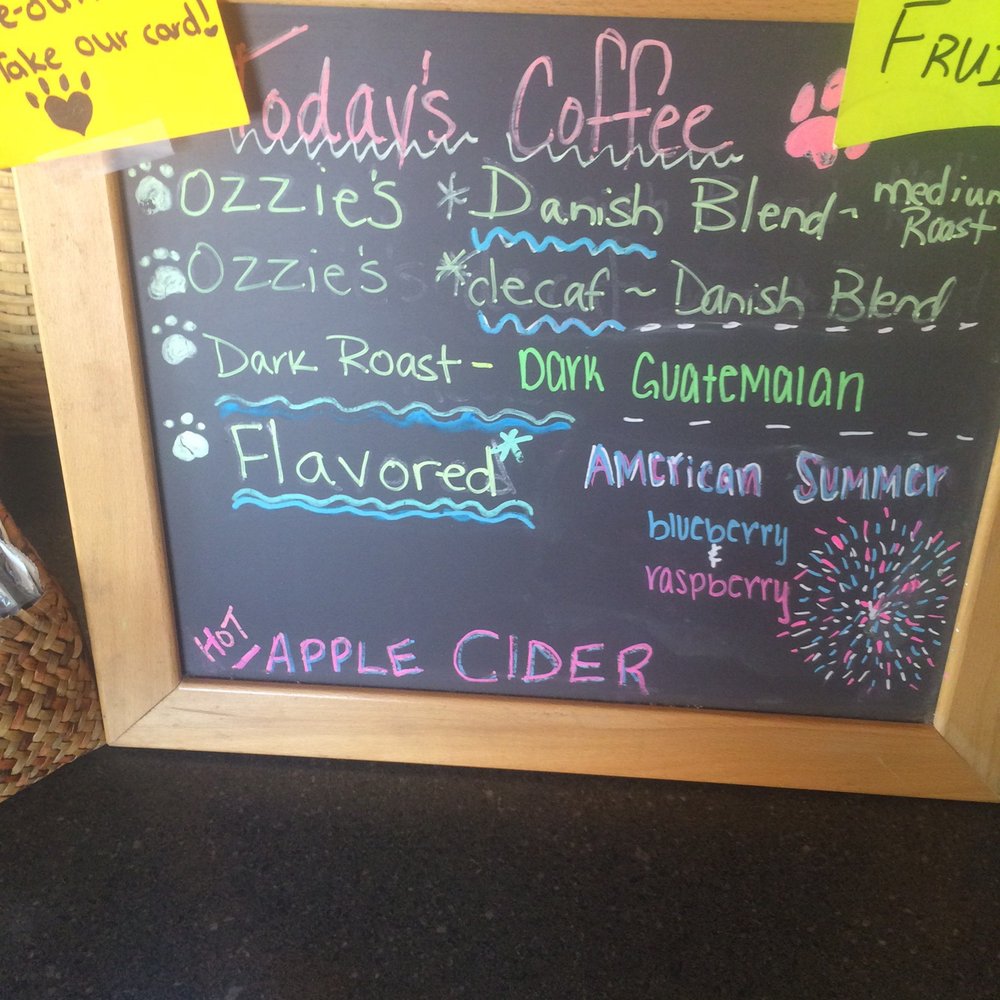 Take our card!
FRUI
Today's Coffee
Ozzie's *Danish Blend~ medium Roast
Ozzie's *decaf ~ Danish Blend
Dark Roast - DARK GUATEMALAN
Flavored* AMERICAN SUMMER
blueberry
&
raspberry
HOT/APPLE CIDER